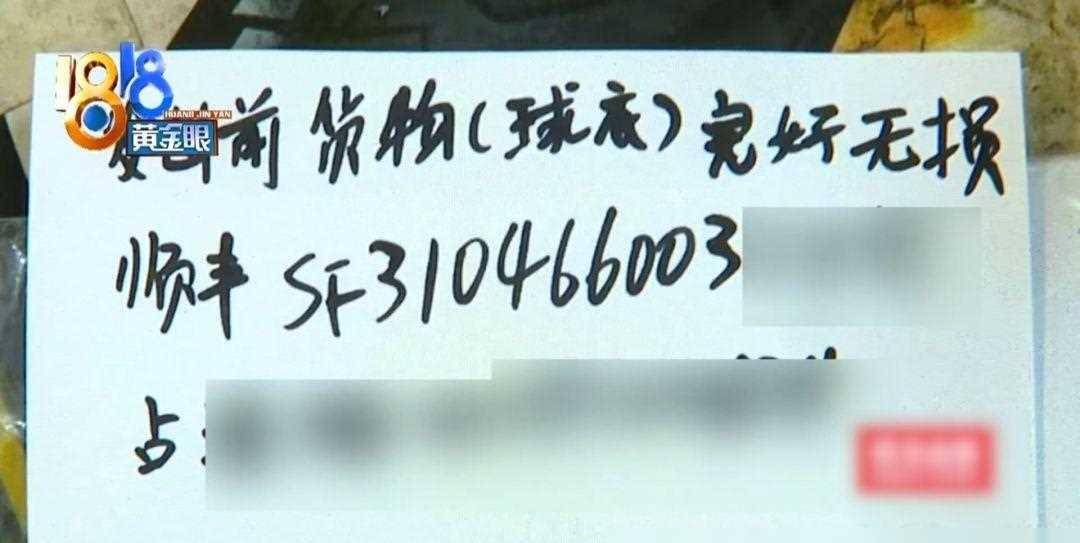 1818
HUANG JIN YAN
黄金眼
发出前货物(球底)完好无损
顺丰 SF310466003
占